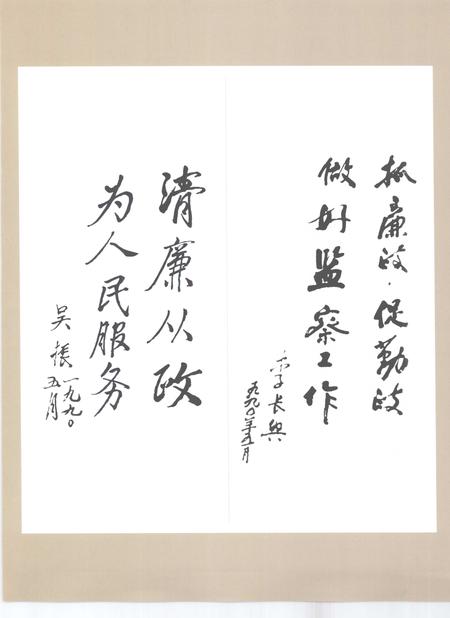 抓廉政·促勤政
做好监察工作
李长兴
一九九〇年五月
清廉从政
为人民服务
吴振
一九九〇
五月